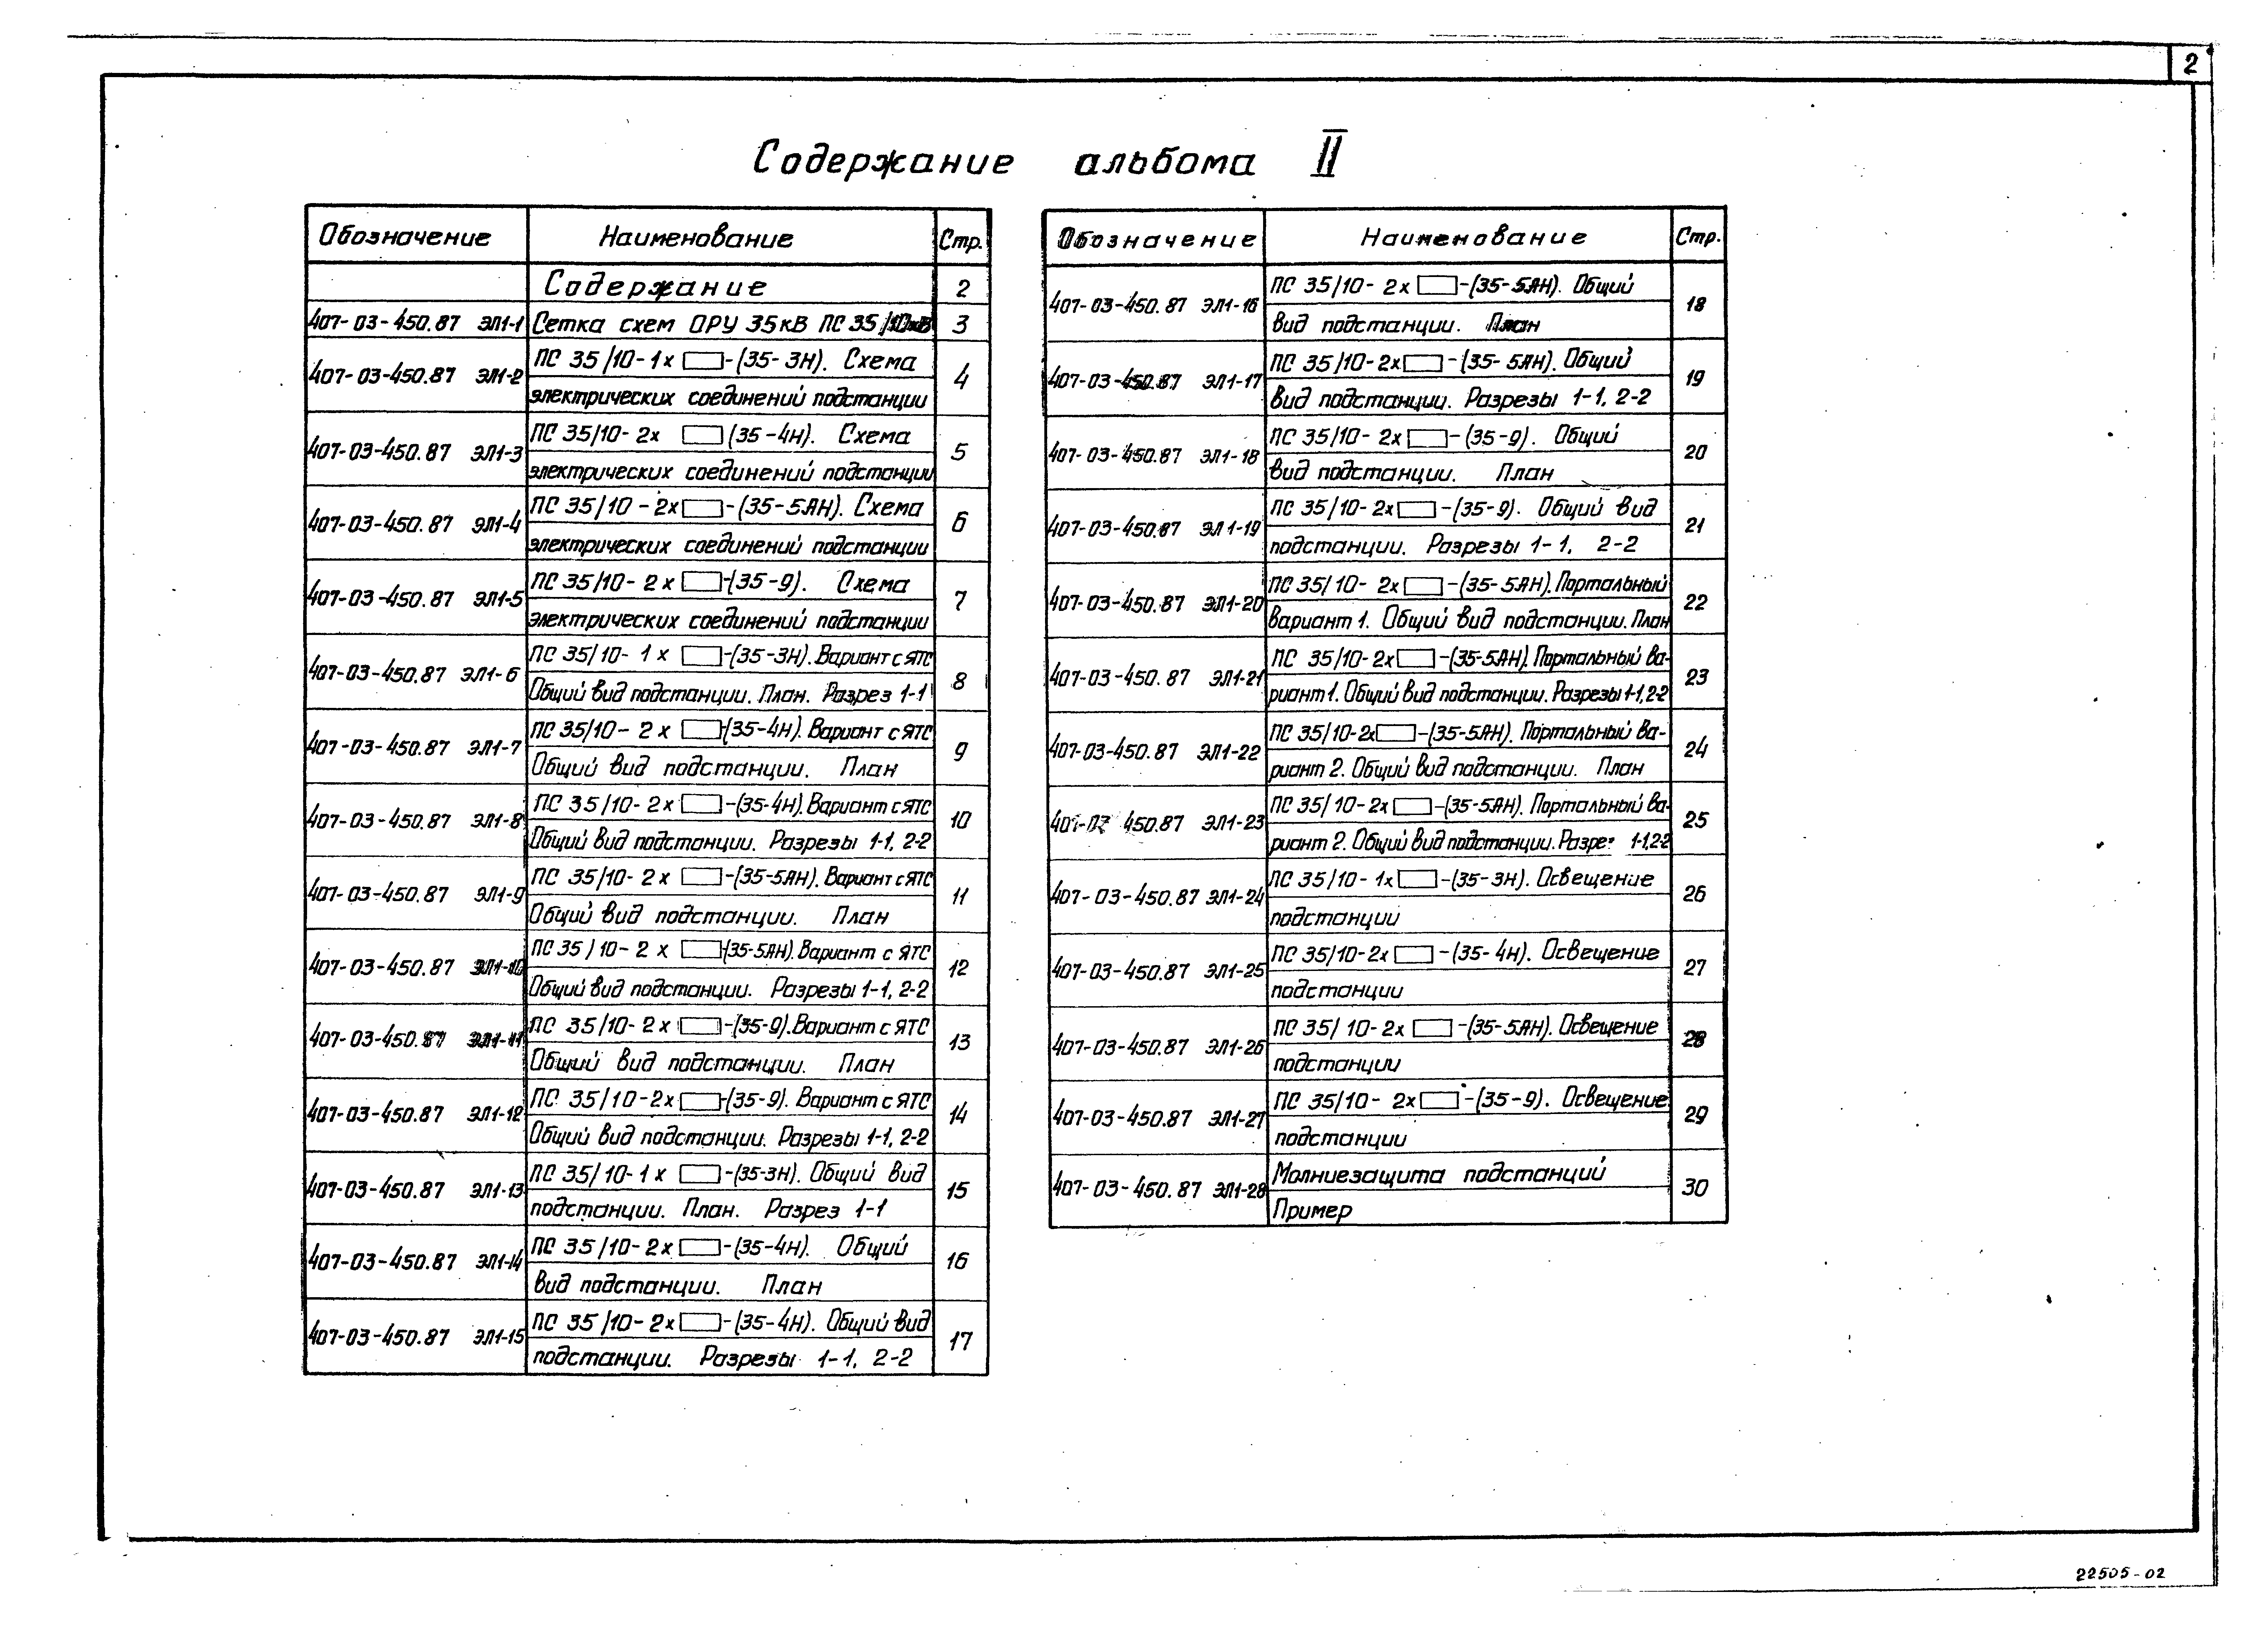 2
Содержание альбома II
Обозначение Наименование Стр.
Содержание 2
407-03-450.87 ЭЛ1-1 Сетка схем ОРУ 35кВ ПС 35/10кВ 3
407-03-450.87 ЭЛ1-2 ПС 35/10-1х▭-(35-3Н). Схема 4
электрических соединений подстанции
407-03-450.87 ЭЛ1-3 ПС 35/10-2х ▭(35-4Н). Схема 5
электрических соединений подстанции
407-03-450.87 ЭЛ1-4 ПС 35/10-2х▭-(35-5АН). Схема 6
электрических соединений подстанции
407-03-450.87 ЭЛ1-5 ПС 35/10-2х▭-(35-9). Схема 7
электрических соединений подстанции
407-03-450.87 ЭЛ1-6 ПС 35/10-1х ▭-(35-3Н). Вариант с ЯТС 8
Общий вид подстанции. План. Разрез 1-1
407-03-450.87 ЭЛ1-7 ПС 35/10-2х ▭-(35-4Н). Вариант с ЯТС 9
Общий вид подстанции. План
407-03-450.87 ЭЛ1-8 ПС 35/10-2х▭-(35-4Н). Вариант с ЯТС 10
Общий вид подстанции. Разрезы 1-1, 2-2
407-03-450.87 ЭЛ1-9 ПС 35/10-2х ▭-(35-5АН). Вариант с ЯТС 11
Общий вид подстанции. План
407-03-450.87 ЭЛ1-10 ПС 35/10-2х ▭-(35-5АН). Вариант с ЯТС 12
Общий вид подстанции. Разрезы 1-1, 2-2
407-03-450.87 ЭЛ1-11 ПС 35/10-2х▭-(35-9). Вариант с ЯТС 13
Общий вид подстанции. План
407-03-450.87 ЭЛ1-12 ПС 35/10-2х▭-(35-9). Вариант с ЯТС 14
Общий вид подстанции. Разрезы 1-1, 2-2
407-03-450.87 ЭЛ1-13 ПС 35/10-1х ▭-(35-3Н). Общий вид 15
подстанции. План. Разрез 1-1
407-03-450.87 ЭЛ1-14 ПС 35/10-2х▭-(35-4Н). Общий 16
вид подстанции. План
407-03-450.87 ЭЛ1-15 ПС 35/10-2х▭-(35-4Н). Общий вид 17
подстанции. Разрезы 1-1, 2-2
Обозначение Наименование Стр.
407-03-450.87 ЭЛ1-16 ПС 35/10-2х▭-(35-5АН). Общий 18
вид подстанции. План
407-03-450.87 ЭЛ1-17 ПС 35/10-2х▭-(35-5АН). Общий 19
вид подстанции. Разрезы 1-1, 2-2
407-03-450.87 ЭЛ1-18 ПС 35/10-2х▭-(35-9). Общий 20
вид подстанции. План
407-03-450.87 ЭЛ1-19 ПС 35/10-2х▭-(35-9). Общий вид 21
подстанции. Разрезы 1-1, 2-2
407-03-450.87 ЭЛ1-20 ПС 35/10-2х▭-(35-5АН). Портальный 22
вариант 1. Общий вид подстанции. План
407-03-450.87 ЭЛ1-21 ПС 35/10-2х▭-(35-5АН). Портальный ва- 23
риант 1. Общий вид подстанции. Разрезы 1-1, 2-2
407-03-450.87 ЭЛ1-22 ПС 35/10-2х▭-(35-5АН). Портальный ва- 24
риант 2. Общий вид подстанции. План
450.87 ЭЛ1-23 ПС 35/10-2х▭-(35-5АН). Портальный ва- 25
риант 2. Общий вид подстанции. 1-1, 2-2
407-03-450.87 ЭЛ1-24 ПС 35/10-1х▭-(35-3Н). Освещение 26
подстанции
407-03-450.87 ЭЛ1-25 ПС 35/10-2х▭-(35-4Н). Освещение 27
подстанции
407-03-450.87 ЭЛ1-26 ПС 35/10-2х▭-(35-5АН). Освещение 28
подстанции
407-03-450.87 ЭЛ1-27 ПС 35/10-2х▭-(35-9). Освещение 29
подстанции
407-03-450.87 ЭЛ1-28 Молниезащита подстанций 30
Пример
22505-02